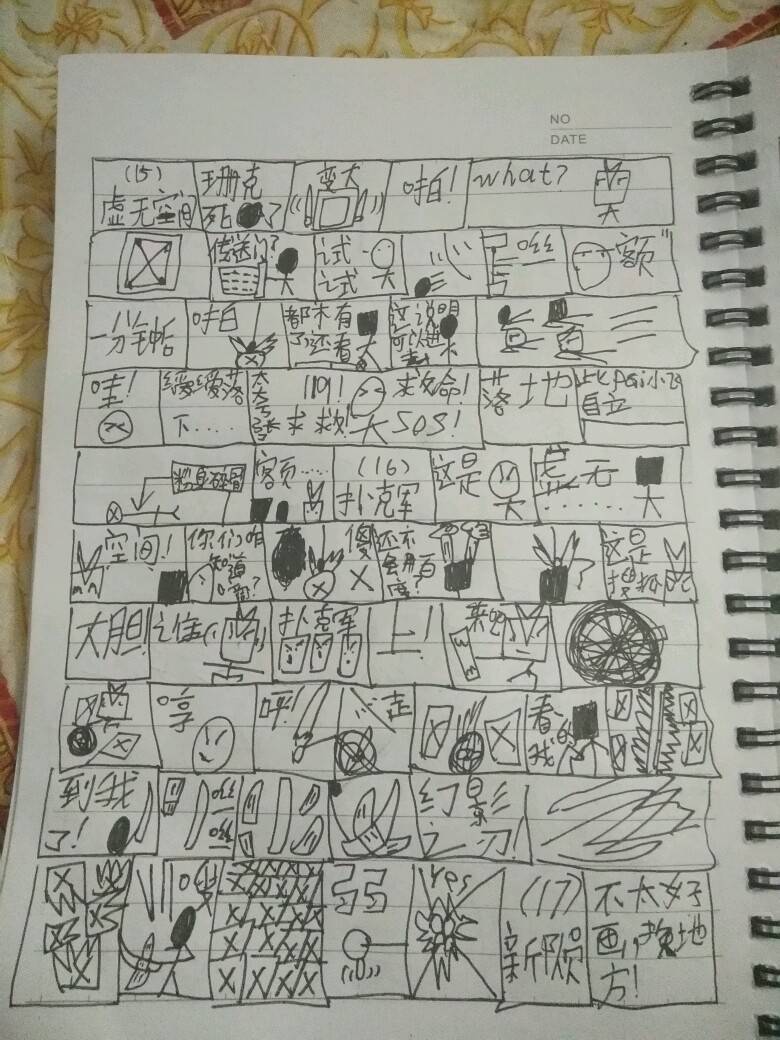 NO
DATE
(15)
虚无空间
珊克
死 ?
变大
啪!
what?
传送门?
试一
试
咝
额
一分钟后
啪
都木有
了还看
这说明
可以进
来
哇!
缓缓落
下……
太太
119!
求救!
救命!
SOS!
落地
自立
粉身碎骨
额……
(16)
扑克军
这是
虚无
……
空间!
你们咋
知道
啊?
傻
X
还不
会用百
度?
?
这是
搜狐
大胆!
扑克军
上!
来吧
哼
呼!
起
看
我的
到我
了!
咝
咝
幻影
之刃!
yes
(17)
新队员
不太好
画,换地
方!